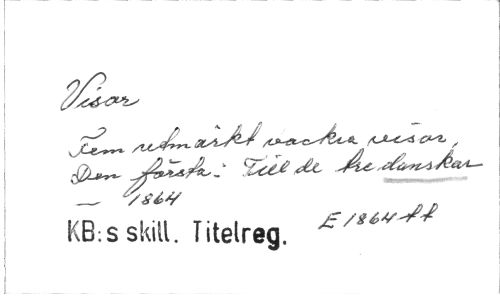 Visor
Fem utmärkt vackra visor,
Den första: Till de tre danskar
— 1864
E 1864 ff
KB:s skill. Titelreg.